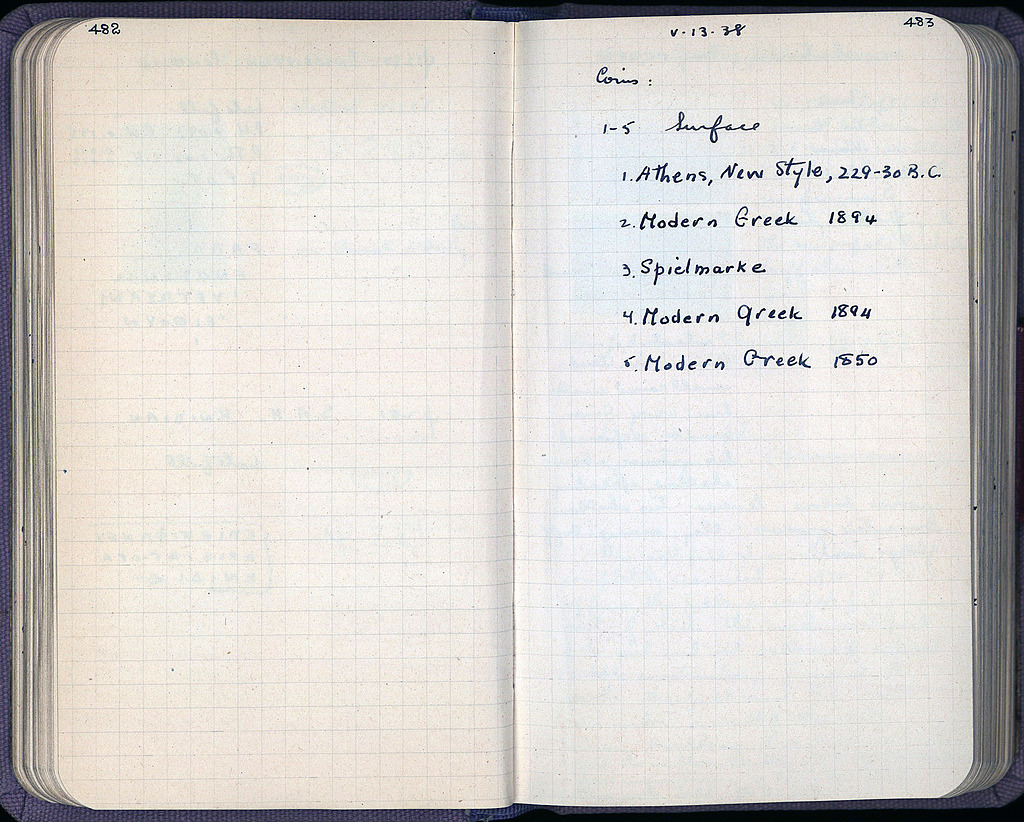 482
483
V-13-38
Coins:
1-5 Surface
1. Athens, New Style, 229-30 B.C.
2. Modern Greek 1894
3. Spielmarke
4. Modern Greek 1894
5. Modern Greek 1850